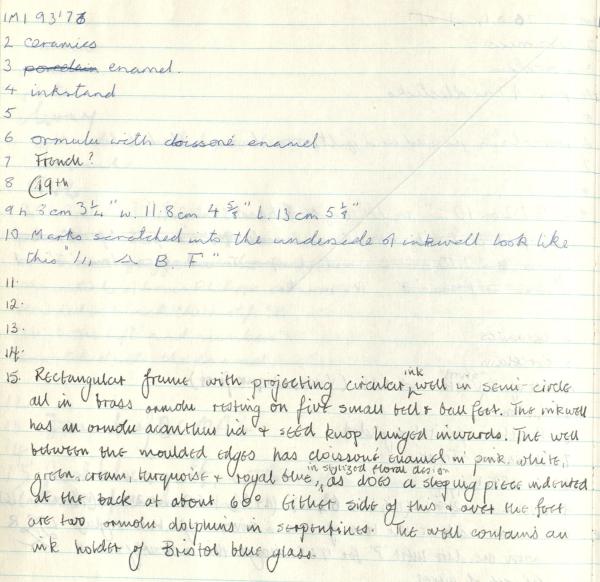 1 M1 93'76
2 ceramics
3 porcelain enamel.
4 inkstand
5
6 ormulu with cloissoné enamel
7 French?
8 C19th
9 h 3cm 3 1/4" w. 11.8cm 4 5/8" L. 13cm 5 1/8"
10 Marks scratched into the underside of inkwell look like
this " B. F "
11.
12.
13.
14.
15. Rectangular frame with projecting circular ink well in semi-circle
all in brass ormolu resting on five small bell & ball feet. The inkwell
has an ormolu acanthus lid & seed knop hinged inwards. The well
between the moulded edges has cloissoné enamel in pink, white,
green, cream, turquoise & royal blue, in stylized floral design as does a sloping piece indented
at the back at about 60° Either side of this & over the feet
are two ormolu dolphins in serpentines. The well contains an
ink holder of Bristol blue glass.